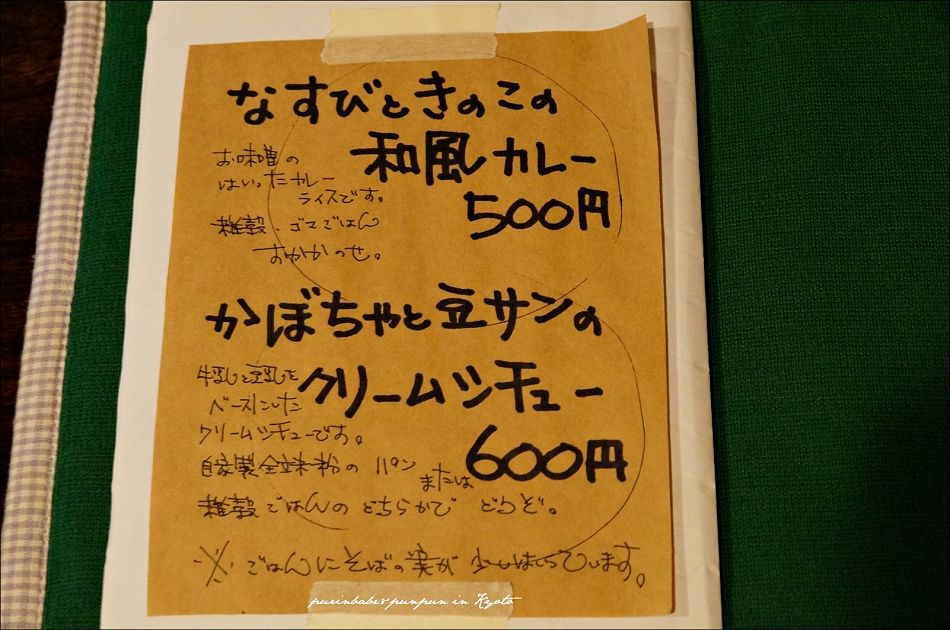 なすびときのこの
和風カレー
500円
お味噌の
はいったカレー
ライスです。
雑穀・ゴマごはん
おかかのせ。
かぼちゃと豆サンの
クリームシチュー
600円
牛乳と豆乳を
ベースにした
クリームシチューです。
自家製全粒粉のパン
または
雑穀ごはんのどちらかで どうぞ。
※ごはんにそばの実が 少しはいっています。
purinbabe&punpun in Kyoto